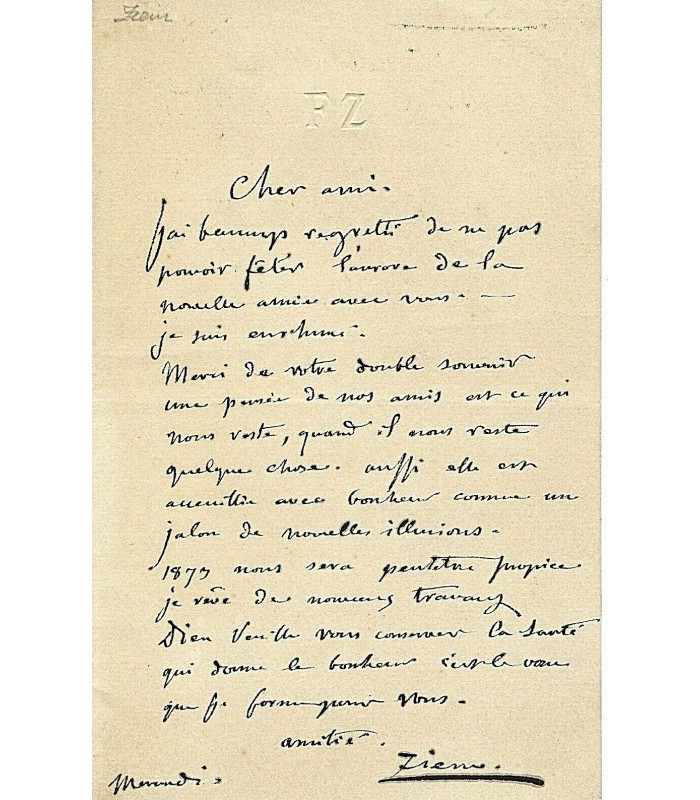 Ziem
F Z
Cher ami.
J'ai beaucoup regretté de ne pas
pouvoir fêter l'aurore de la
nouvelle année avec vous. —
je suis enrhumé.
Merci de votre double souvenir
une pensée de nos amis est ce qui
nous reste, quand il nous reste
quelque chose. aussi elle est
accueillie avec bonheur comme un
jalon de nouvelles illusions.
1873 nous sera peutetre propice
je rêve de nouveaux travaux
Dieu Veuille vous conserver la Santé
qui donne le bonheur c'est le vœu
que je forme pour vous.
amitié.
Ziem.
Mercredi.